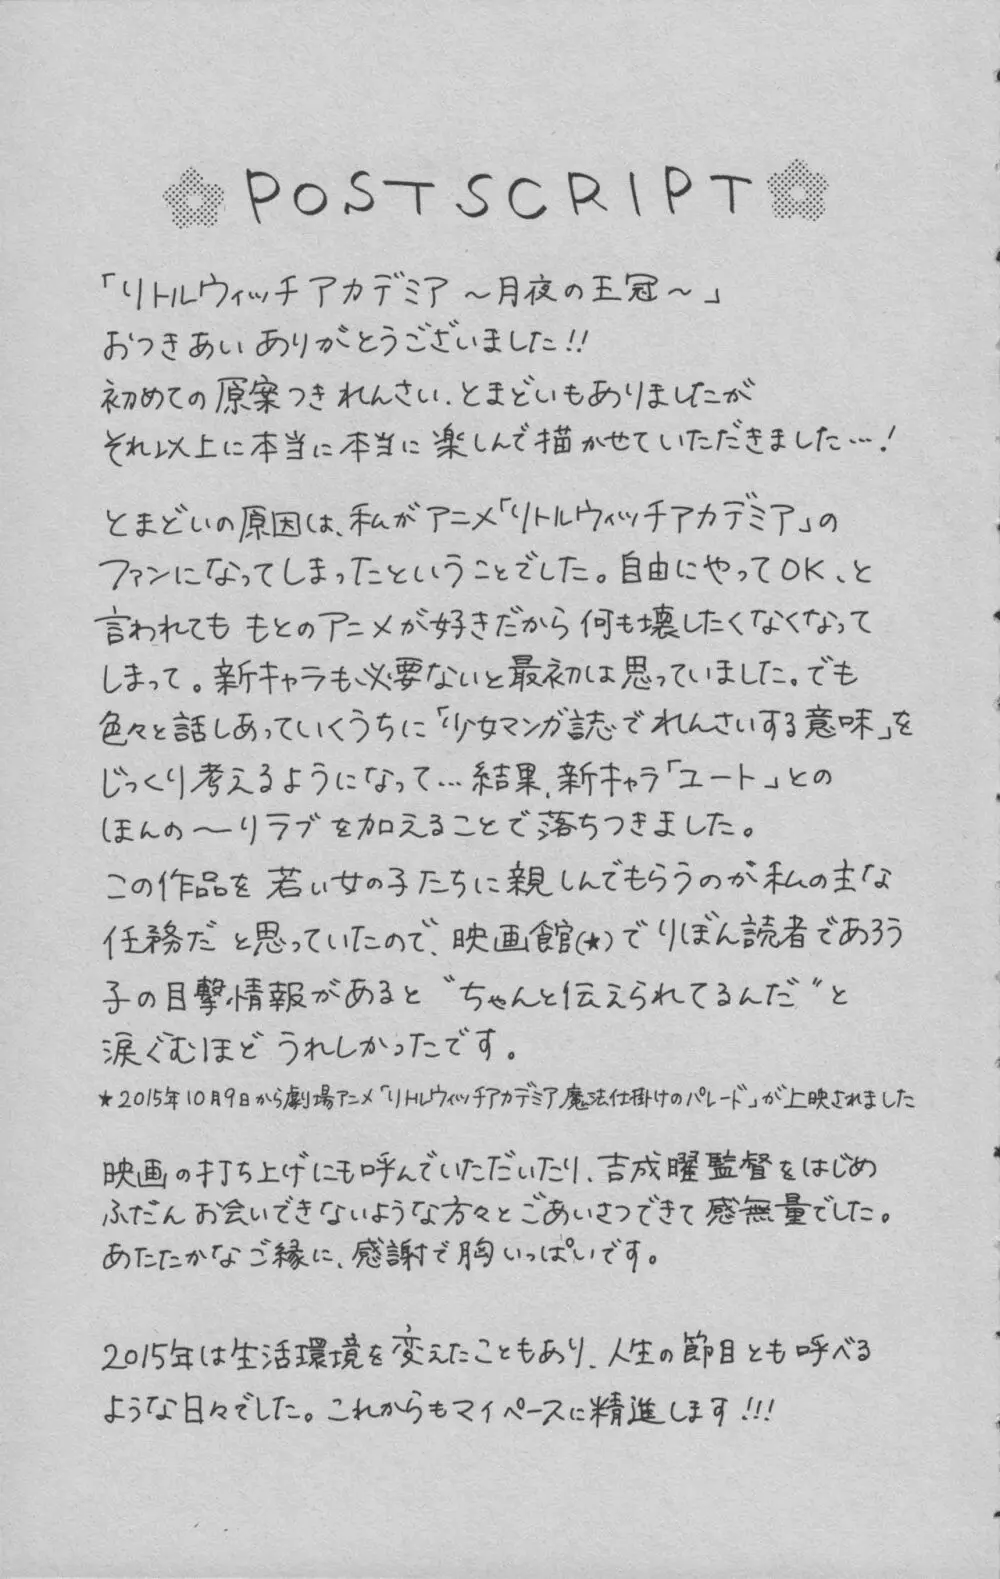 POSTSCRIPT
「リトルウィッチアカデミア〜月夜の王冠〜」
おつきあいありがとうございました!!
初めての原案つきれんさい、とまどいもありましたが
それ以上に本当に本当に楽しんで描かせていただきました…!
とまどいの原因は、私がアニメ「リトルウィッチアカデミア」の
ファンになってしまったということでした。自由にやってOK、と
言われてももとのアニメが好きだから何も壊したくなくなって
しまって。新キャラも必要ないと最初は思っていました。でも
色々と話しあっていくうちに「少女マンガ誌でれんさいする意味」を
じっくり考えるようになって…結果、新キャラ「ユート」との
ほんの〜りラブを加えることで落ちつきました。
この作品を若い女の子たちに親しんでもらうのが私の主な
任務だと思っていたので、映画館(★)でりぼん読者であろう
子の目撃情報があると"ちゃんと伝えられてるんだ"と
涙ぐむほどうれしかったです。
★2015年10月9日から劇場アニメ「リトルウィッチアカデミア魔法仕掛けのパレード」が上映されました
映画の打ち上げにも呼んでいただいたり、吉成曜監督をはじめ
ふだんお会いできないような方々とごあいさつできて感無量でした。
あたたかなご縁に、感謝で胸いっぱいです。
2015年は生活環境を変えたこともあり、人生の節目とも呼べる
ような日々でした。これからもマイペースに精進します!!!